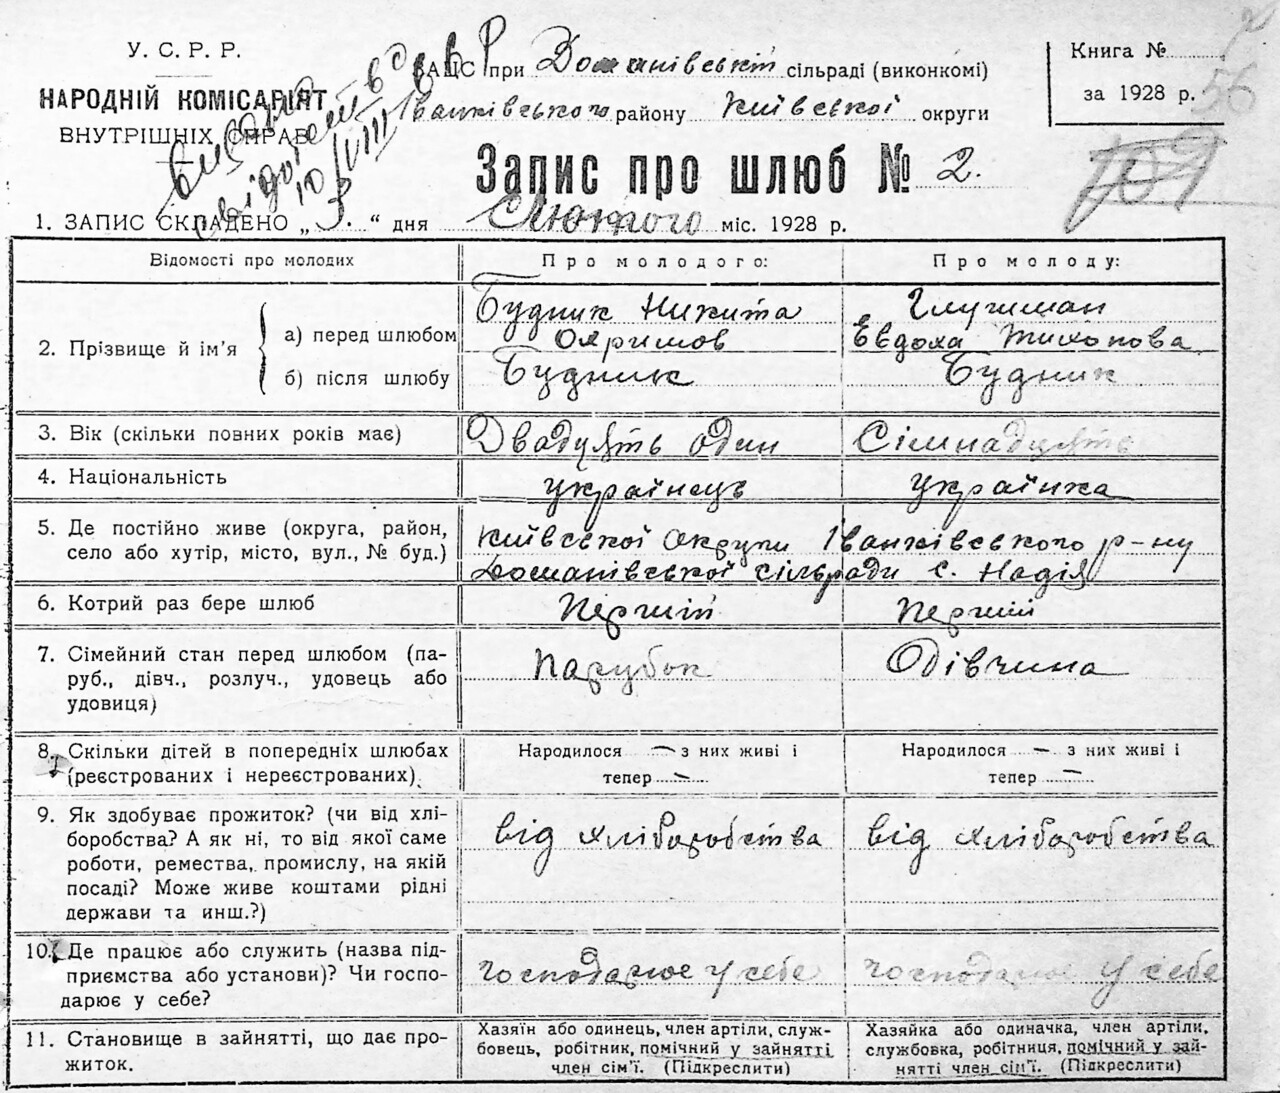 У. С. Р. Р.
НАРОДНІЙ КОМІСАРІЯТ
ВНУТРІШНІХ СПРАВ
10/VIII
ЗАГС при Доманівській сільраді (виконкомі)
Іванківського району Київської округи
Книга №
за 1928 р.
56
109
Запис про шлюб № 2.
1. ЗАПИС СКЛАДЕНО „ 3. “ дня Лютого міс. 1928 р.
Відомості про молодих
Про молодого:
Про молоду:
2. Прізвище й ім'я
а) перед шлюбом
б) після шлюбу
Будник Никита
Будник
Евдоха
Будник
3. Вік (скільки повних років має)
Двадцять один
Сімнадцять
4. Національність
українець
українка
5. Де постійно живе (округа, район,
село або хутір, місто, вул., № буд.)
Київської округи Іванківського р-ну
Доманівської сільради с. Надія
6. Котрий раз бере шлюб
Перший
Перший
7. Сімейний стан перед шлюбом (па-
руб., дівч., розлуч., удовець або
удовиця)
Парубок
Дівчина
8. Скільки дітей в попередніх шлюбах
(реєстрованих і нереєстрованих)
Народилося — з них живі і
тепер —
Народилося — з них живі і
тепер —
9. Як здобуває прожиток? (чи від хлі-
боробства? А як ні, то від якої саме
роботи, ремества, промислу, на якій
посаді? Може живе коштами рідні
держави та инш.?)
від хліборобства
від хліборобства
10. Де працює або служить (назва під-
приємства або установи)? Чи госпо-
дарює у себе?
господарює у себе
господарює у себе
11. Становище в зайнятті, що дає про-
житок.
Хазяїн або одинець, член артіли, служ-
бовець, робітник, помічний у зайнятті
член сім'ї. (Підкреслити)
Хазяйка або одиначка, член артіли,
службовка, робітниця, помічний у зай-
нятті член сім'ї. (Підкреслити)